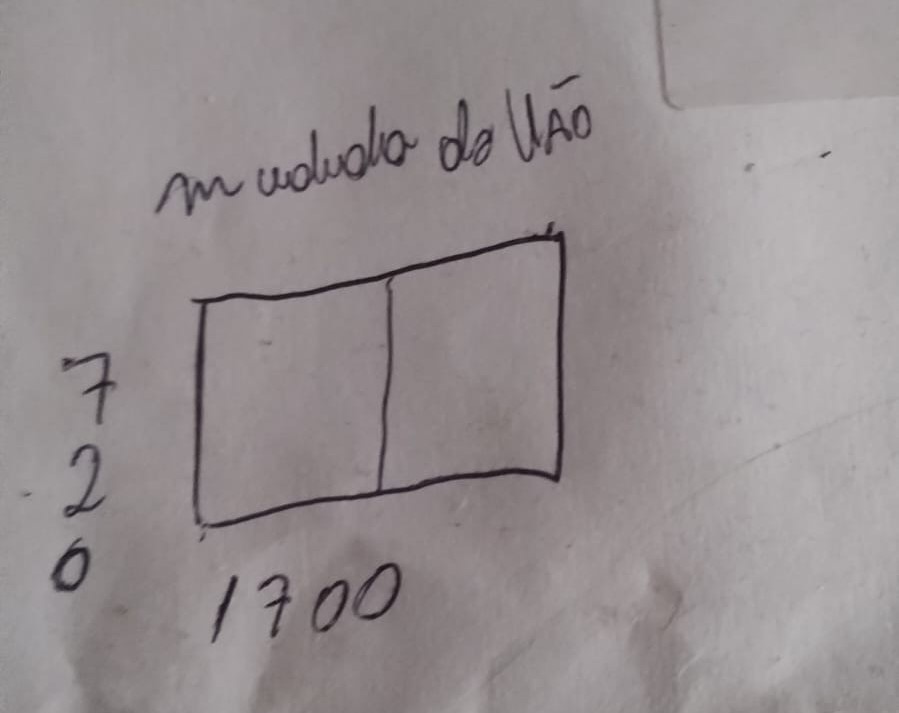 medida do VÃO
7
2
0
1700